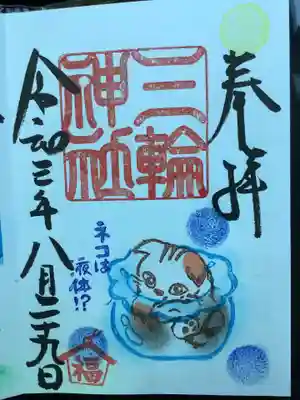 奉拝
三輪
神社
令和三年八月二十九日
ネコは
液体!?
福